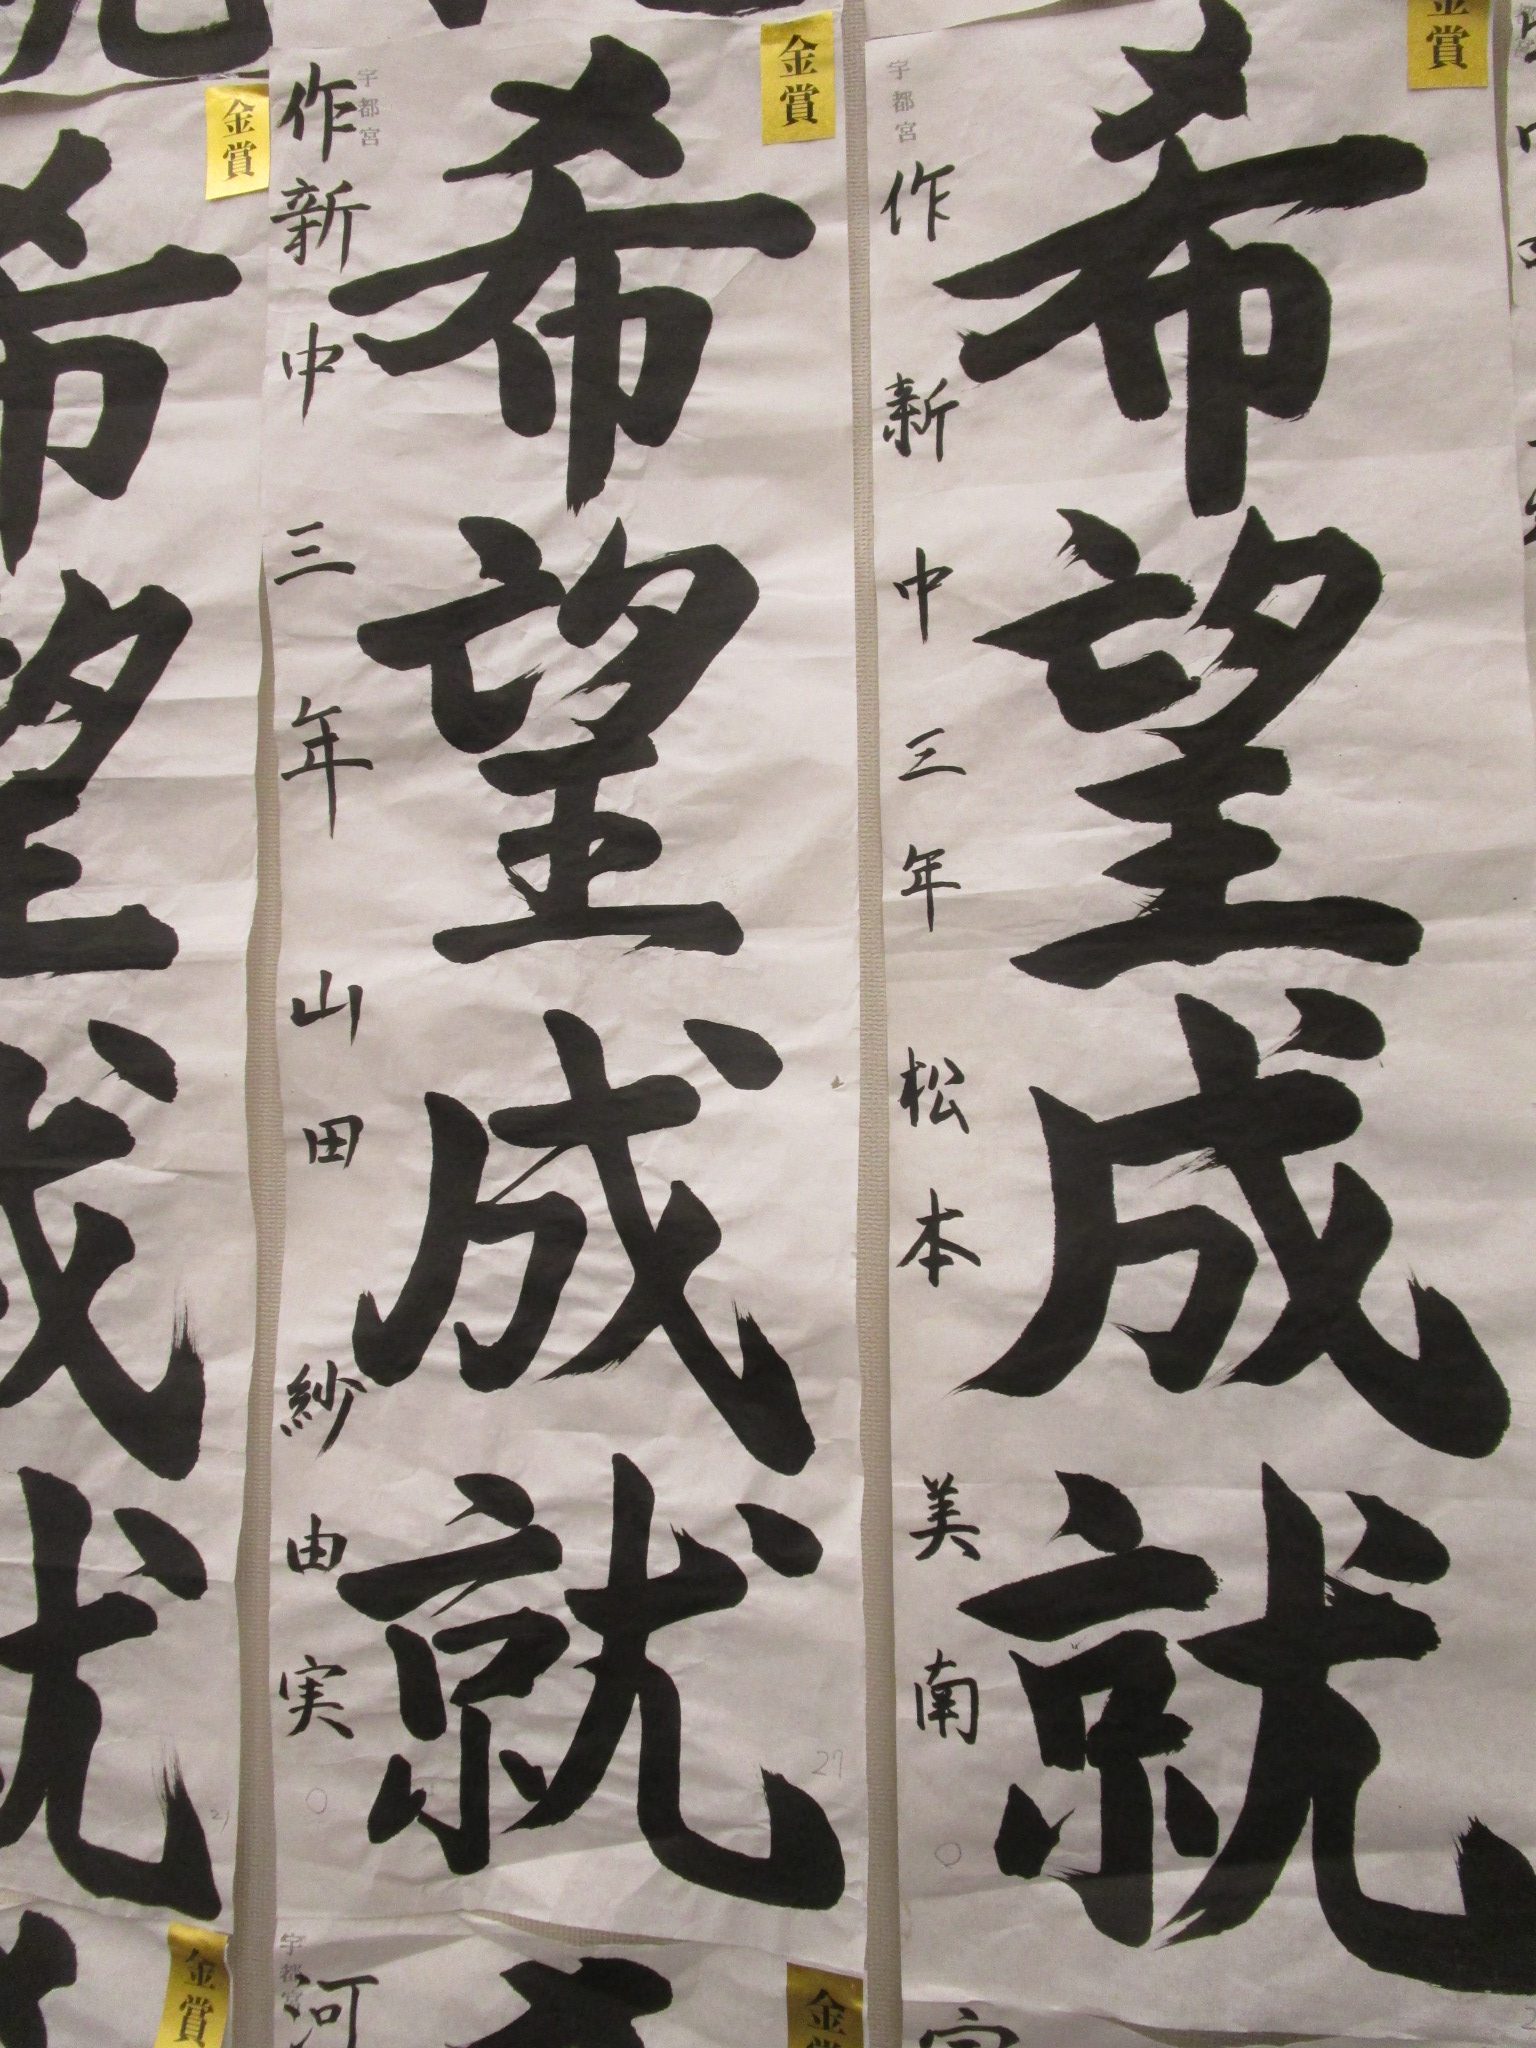 金賞
宇都宮
希望成就
作新中三年 松本美南
金賞
宇都宮
希望成就
作新中三年 山田紗由実
27
金賞
希望成就
21
金賞
宇都宮
河
金賞